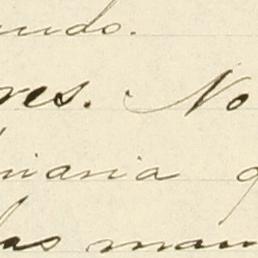 undo.
res. No
niaria
las man